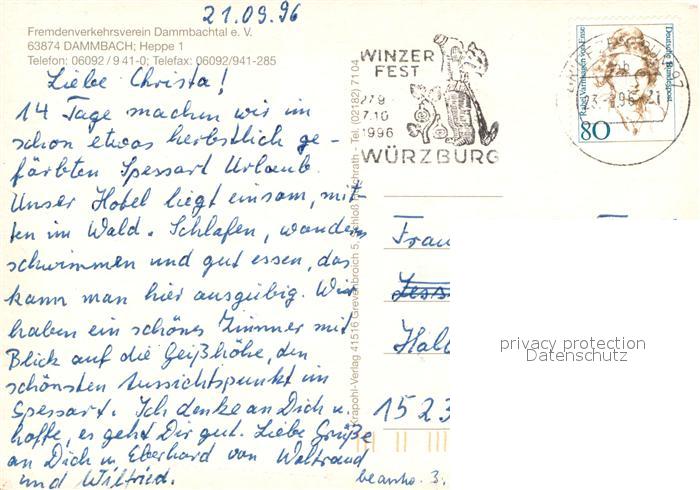 21.09.96
Fremdenverkehrsverein Dammbachtal e. V.
63874 DAMMBACH; Heppe 1
Telefon: 06092 / 9 41-0; Telefax: 06092/941-285
Liebe Christa!
14 Tage machen wir im
schon etwas herbstlich ge-
färbten Spessart Urlaub.
Unser Hotel liegt einsam, mit-
ten im Wald. Schlafen, wandern
schwimmen und gut essen, das
kann man hier ausgiebig. Wir
haben ein schönes Zimmer mit
Blick auf die Geißhöhe, den
schönsten Aussichtspunkt im
Spessart. Ich denke an Dich u.
hoffe, es geht Dir gut. Liebe Grüße
an Dich u. Eberhard von Waltraud
und Wilfried.
Krapohl-Verlag 41516 Grevenbroich 5, Schloß - Tel. (02182) 7104
WINZER
FEST
27.9
7.10
1996
WÜRZBURG
Rahel Varnhagen von Ense
Deutsche Bundespost
80
23.-9.96-21
97
Frau
Hal
1523
beantw. 3.
privacy protection
Datenschutz